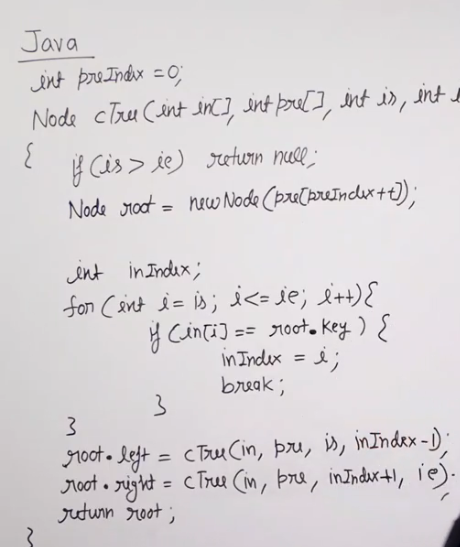 Java
int preIndx = 0;
Node cTree (int in[], int pre[], int is, int i
{ if (is > ie) return null;
Node root = new Node (pre[preIndex++]);
int inIndex;
for (int i = is; i <= ie; i++) {
if (in[i] == root.key) {
inIndex = i;
break;
}
}
root.left = cTree (in, pre, is, inIndex-1);
root.right = cTree (in, pre, inIndex+1, ie).
return root;
}